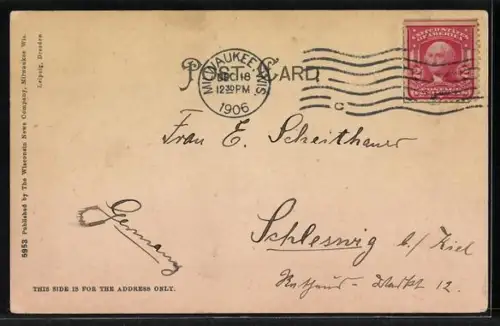 6953 Published by The Wisconsin News Company, Milwaukee Wis.
Leipzig, Dresden.
POST CARD
MILWAUKEE, WIS.
DEC 18
12 30 PM
1906
C
UNITED STATES
OF AMERICA
Frau E. Scheithauer
Germany
Schleswig b/ Kiel
Rathaus-Markt 12.
THIS SIDE IS FOR THE ADDRESS ONLY.